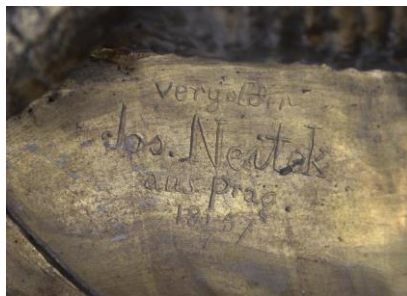 vergoldin
Jos. Neutek
aus prag